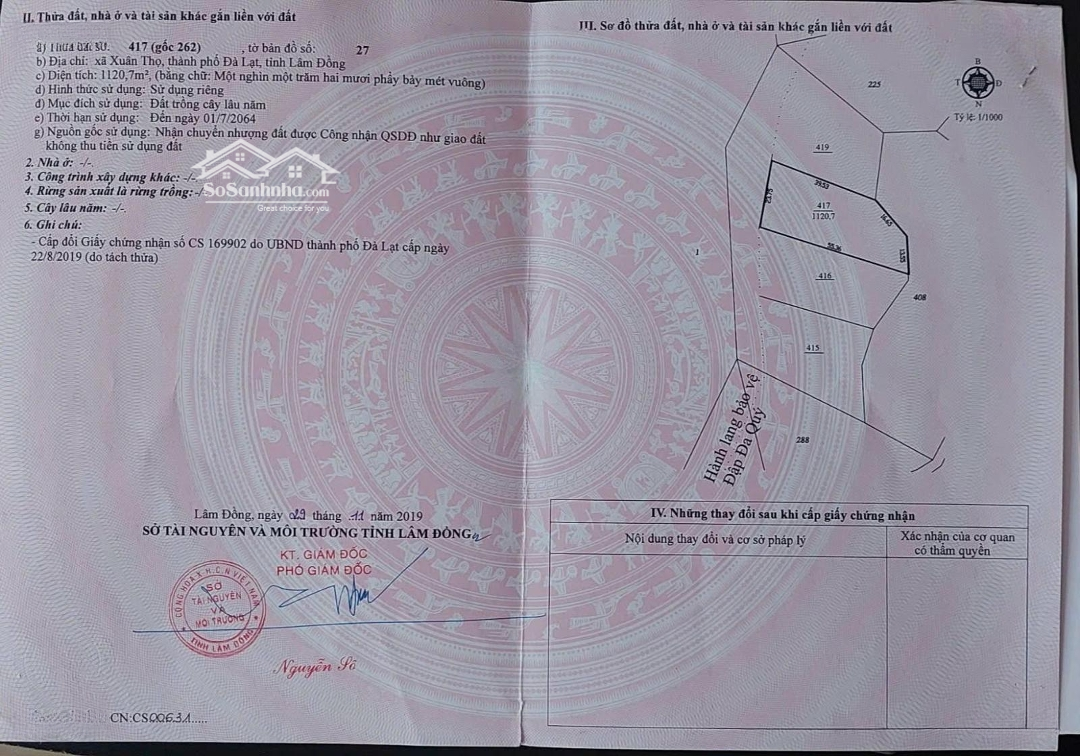 II. Thửa đất, nhà ở và tài sản khác gắn liền với đất
417 (gốc 262) , tờ bản đồ số: 27
b) Địa chỉ: xã Xuân Thọ, thành phố Đà Lạt, tỉnh Lâm Đồng
c) Diện tích: 1120,7m², (bằng chữ: Một nghìn một trăm hai mươi phẩy bảy mét vuông)
d) Hình thức sử dụng: Sử dụng riêng
đ) Mục đích sử dụng: Đất trồng cây lâu năm
e) Thời hạn sử dụng: Đến ngày 01/7/2064
g) Nguồn gốc sử dụng: Nhận chuyển nhượng đất được Công nhận QSDĐ như giao đất
không thu tiền sử dụng đất
2. Nhà ở: -/-.
3. Công trình xây dựng khác: -/-.
4. Rừng sản xuất là rừng trồng: -/-
5. Cây lâu năm: -/-.
6. Ghi chú:
- Cấp đổi Giấy chứng nhận số CS 169902 do UBND thành phố Đà Lạt cấp ngày
22/8/2019 (do tách thửa)
SoSanhnha.com
Great choice for you
Lâm Đồng, ngày 29 tháng 11 năm 2019
SỞ TÀI NGUYÊN VÀ MÔI TRƯỜNG TỈNH LÂM ĐỒNG
KT. GIÁM ĐỐC
PHÓ GIÁM ĐỐC
CỘNG HÒA X.H.C.N VIỆT NAM
SỞ
TÀI NGUYÊN
VÀ
MÔI TRƯỜNG
TỈNH LÂM ĐỒNG
Nguyễn Sô
CN:CS00631.....
III. Sơ đồ thửa đất, nhà ở và tài sản khác gắn liền với đất
B
T Đ
N
Tỷ lệ: 1/1000
225
419
39.53
23.75
417
1120.7
14.65
13.55
55.36
1
416
408
415
288
Hành lang bảo vệ
Đập Đa Quý
IV. Những thay đổi sau khi cấp giấy chứng nhận
Nội dung thay đổi và cơ sở pháp lý
Xác nhận của cơ quan
có thẩm quyền